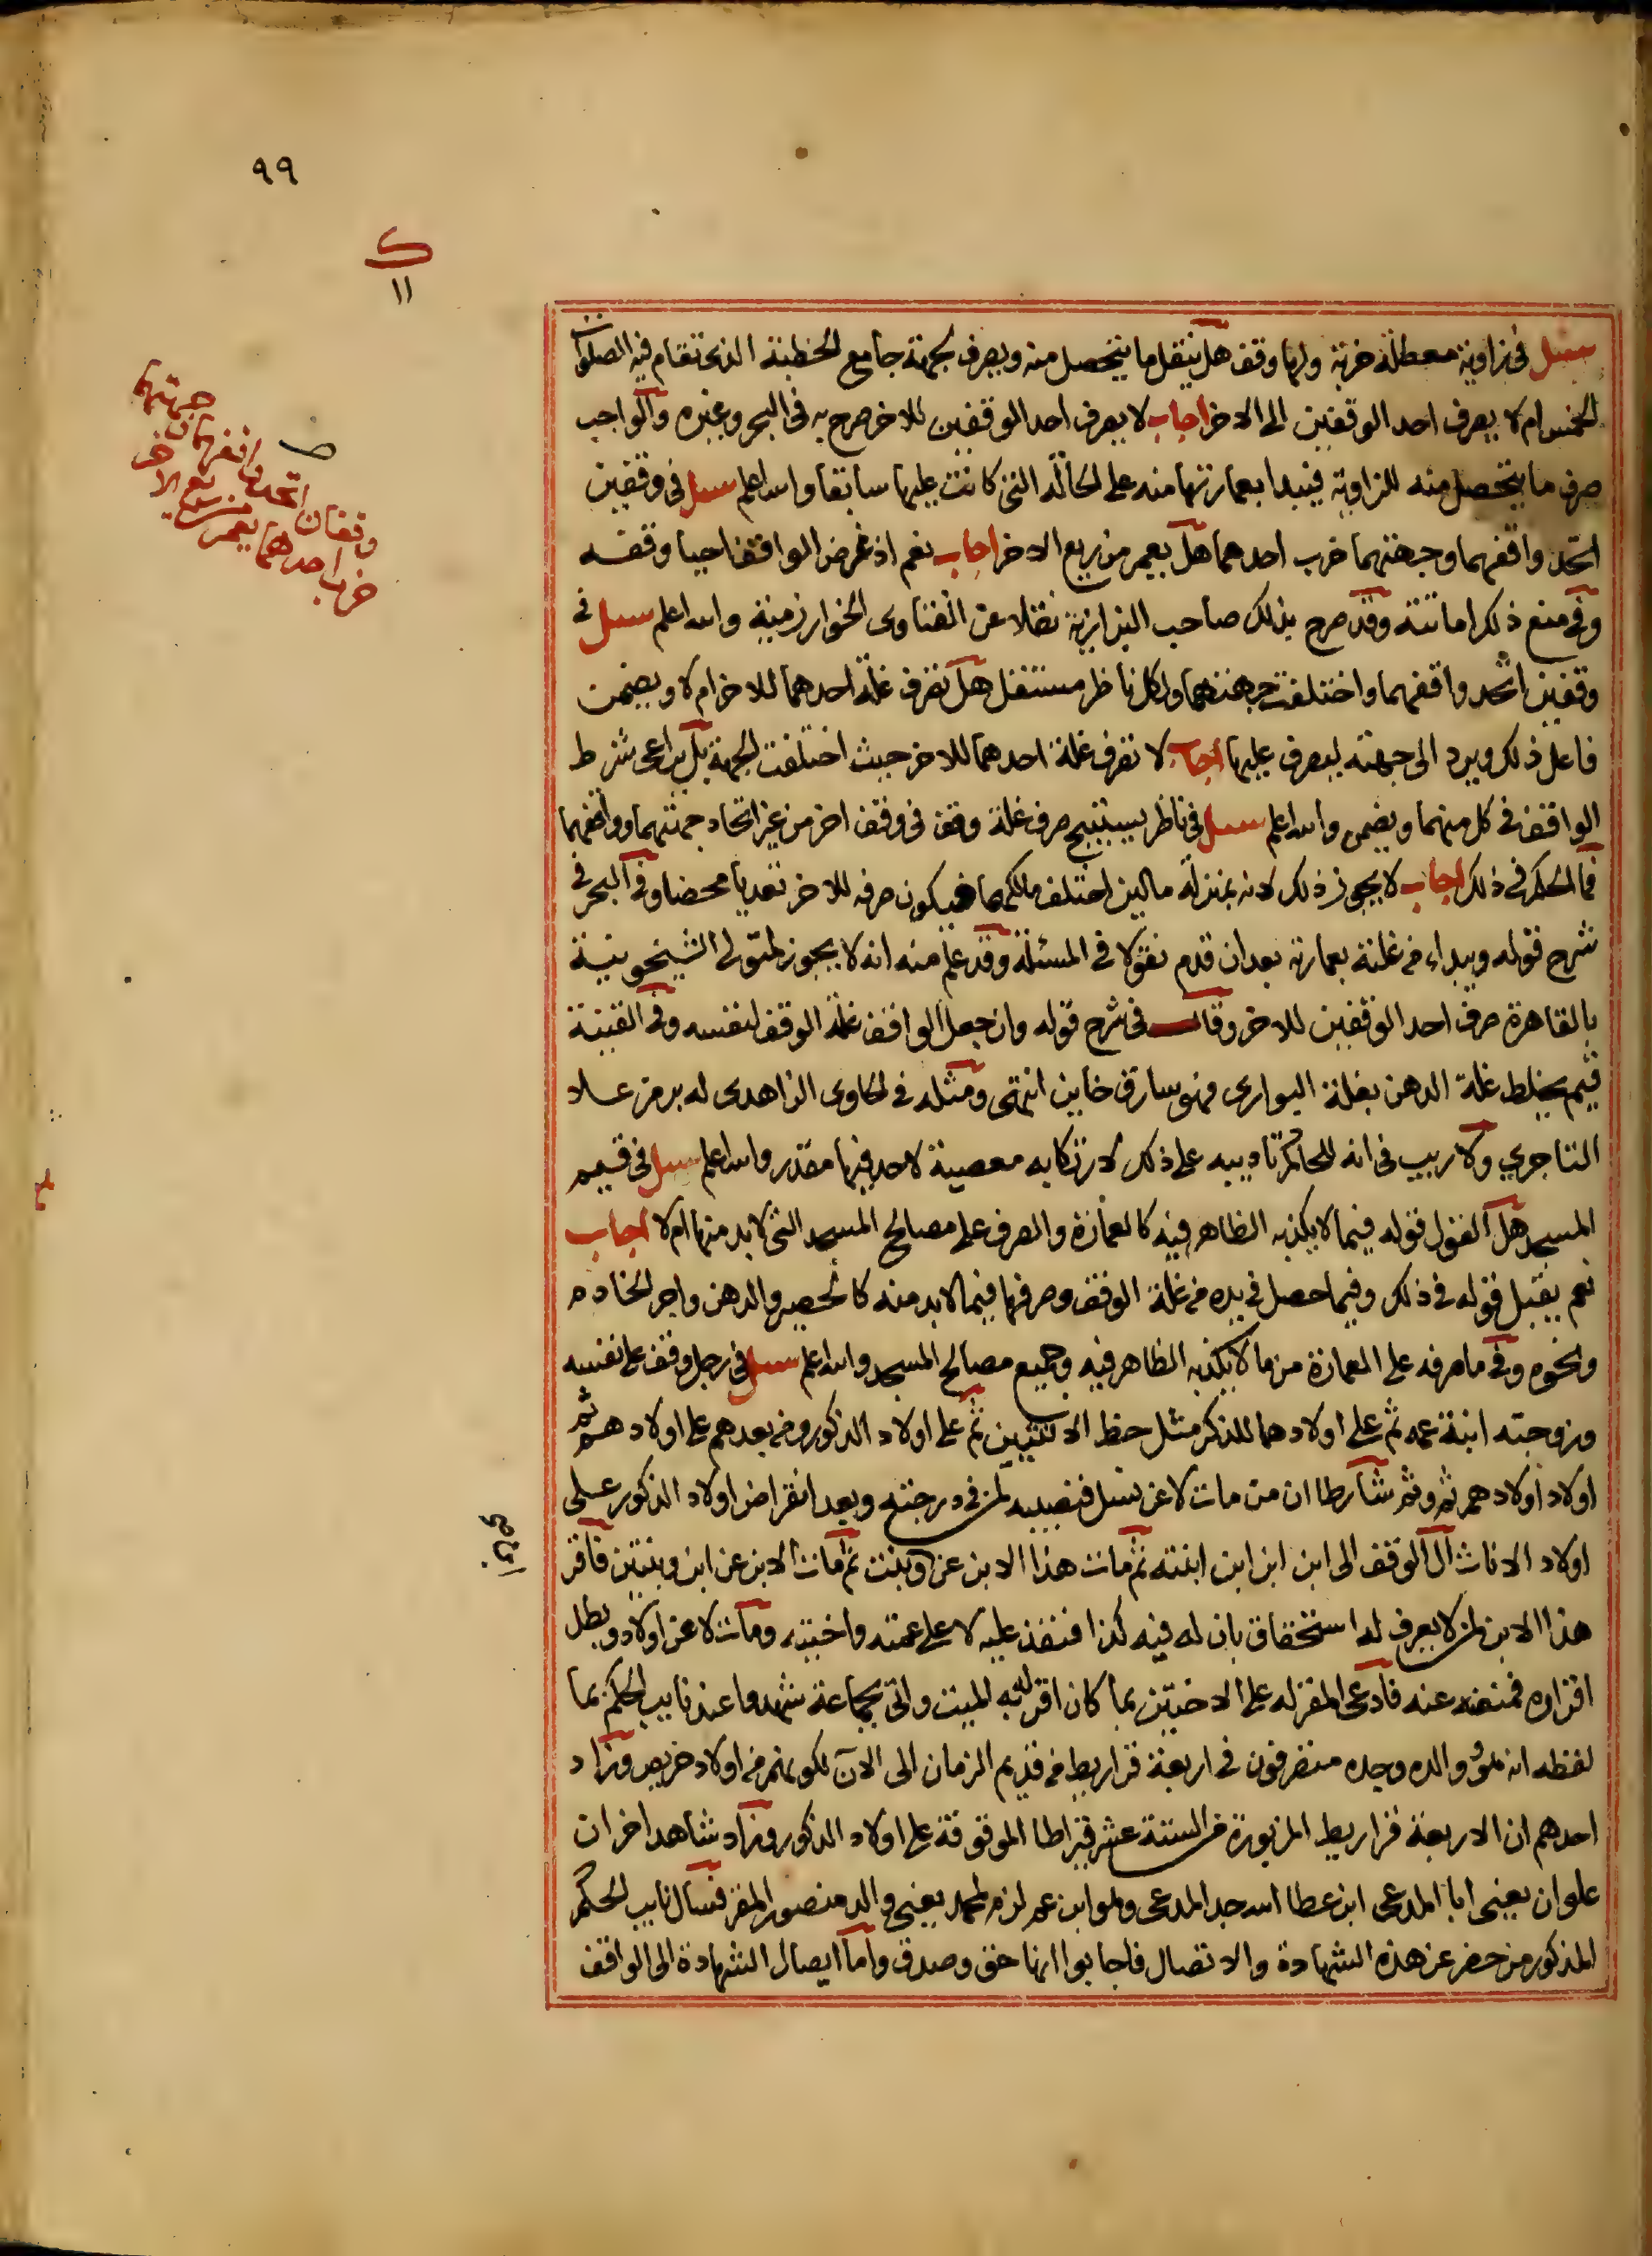 ٩٩
ك
١١
سئل في زاوية معطلة خربة ولها وقف هل ينقل ما يتحصل منه ويصرف لجهة جامع الخطبة الذي تقام فيه الصلوات
الخمس ام لا يصرف احد الوقفين الى الاخر اجاب لا يصرف احد الوقفين للاخر صرح به في البحر وغيره والواجب
صرف ما يتحصل منه للزاوية فيبدا بعمارتها منه على الحالة التي كانت عليها سابقا والله اعلم سئل في وقفين
اتحد واقفهما وجهتهما خرب احدهما هل يعمر من ريع الاخر اجاب نعم اذ غرض الواقف احيا وقفه
وفي منع ذلك اماتته وقد صرح بذلك صاحب البزازية نقلا عن الفتاوى الخوارزمية والله اعلم سئل في
وقفين اتحد واقفهما واختلفت جهتهما ولكل ناظر مستقل هل تصرف غلة احدهما للاخر ام لا ويضمن
فاعل ذلك ويرد الى جهته ليصرف عليها اجاب لا تصرف غلة احدهما للاخر حيث اختلفت الجهة بل يراعى شرط
الواقف في كل منهما ويضمن والله اعلم سئل في ناظر يستبيح صرف غلة وقف في وقف اخر من غير اتحاد جهتهما وواقفهما
فما الحكم في ذلك اجاب لا يجوز ذلك لانه بمنزلة مالين اختلف مالكهما فيكون صرفه للاخر تعديا محضا وفي البحر في
شرح قوله ويبداء من غلته بعمارته بعد ان قدم نقولا في المسئلة وقد علم منه انه لا يجوز لمتولى الشيخونية
بالقاهرة صرف احد الوقفين للاخر وقال في شرح قوله وان جعل الواقف غلة الوقف لنفسه وفي القنية
قيم يخلط غلة الدهن بغلة البوارى فهو سارق خاين انتهى ومثله في الحاوى الزاهدى له برمز علاء
التاجري ولا ريب في انه للحاكم تاديبه على ذلك لارتكابه معصية لا حد فيها مقدر والله اعلم سئل في قيم
المسجد هل القول قوله فيما لا يكذبه الظاهر فيه كالعمارة والصرف على مصالح المسجد التي لا بد منها ام لا اجاب
نعم يقبل قوله في ذلك وفيما حصل في يده من غلة الوقف وصرفها فيما لا بد منه كالحصير والدهن واجر الخادم
ونحوه وفي ما صرفه على العمارة من ما لا يكذبه الظاهر فيه وجميع مصالح المسجد والله اعلم سئل في رجل وقف على نفسه
وزوجته ابنة عمه ثم على اولادهما للذكر مثل حظ الانثيين ثم على اولاد الذكور ومن بعدهم على اولادهم ثم
اولاد اولادهم ثم وثم شارطا ان من مات لا عن نسل فنصيبه لمن في درجته وبعد انقراض اولاد الذكور على
اولاد الاناث آل الوقف الى ابن ابن ابن ابنته ثم مات هذا الابن عن وبنت ثم مات الابن عن ابن وبنتين فاقر
هذا الابن لمن لا يعرف له استحقاق بان له فيه كذا فنفذ عليه لا على عمته واختيه ومات لا عن اولاد وبطل
اقراره فمنعنه عنه فادعى المقر له على الاختين بما كان اقر له به الميت واتى بجماعة شهدوا عند نايب الحكم بما
لفظه انه هو ووالده وجده متصرفون في اربعة قراريط من قديم الزمان الى الآن لكونهم من اولاد حريص وزاد
احدهم ان الاربعة قراريط المزبورة من الستة عشر قيراطا الموقوفة على اولاد الذكور وزاد شاهد اخر ان
علوان يعني ابا المدعى ابن عطا الله جد المدعى وهو ابن عم لزم لمحمد يعني والد منصور المقر فسال نايب الحكم
المذكور من حضر عن هذه الشهادة والاتصال فاجابوا انها حق وصدق واما ايصال الشهادة الى الواقف
وقفان اتحد واقفهما وجهتهما
خرب احدهما يعمر من ريع الاخر